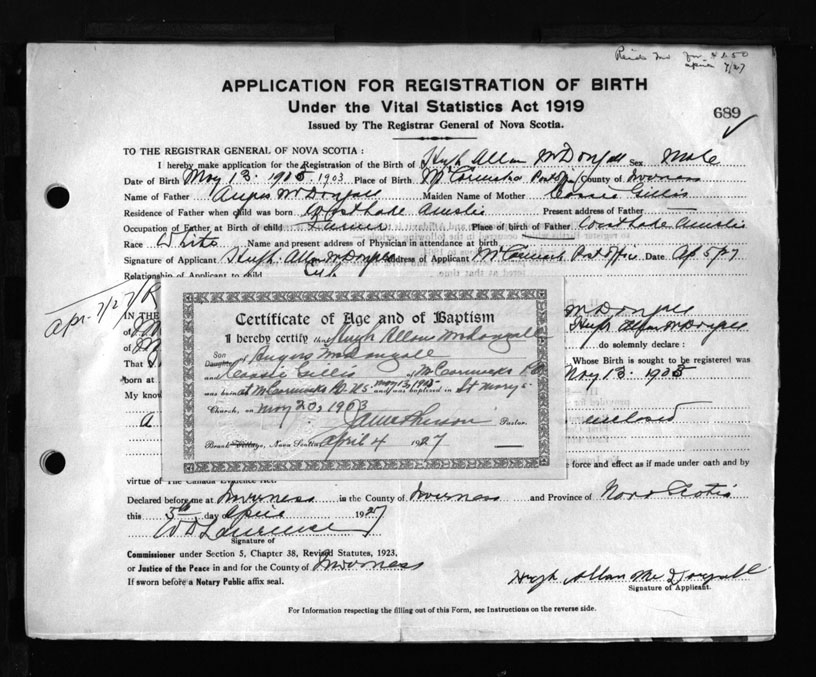 april 7/27
APPLICATION FOR REGISTRATION OF BIRTH
Under the Vital Statistics Act 1919
689
Issued by The Registrar General of Nova Scotia.
TO THE REGISTRAR GENERAL OF NOVA SCOTIA :
I hereby make application for the Registration of the Birth of Hugh Allan McDougall Sex Male
Date of Birth May 13. 1903 Place of Birth McCormicks Post Office County of Inverness
Name of Father Angus McDougall Maiden Name of Mother Cassie Gillis
Residence of Father when child was born West Lake Ainslie Present address of Father
Occupation of Father at Birth of child Farmer Place of birth of Father West Lake Ainslie
Race White Name and present address of Physician in attendance at birth
Signature of Applicant Hugh Allan McDougall Address of Applicant McCormick Post Office Date Ap 5/27
Relationship of Applicant to child
apr 7/27
IN THE McDougall
of Hugh Allan McDougall
of do solemnly declare :
That Whose Birth is sought to be registered was
born at May 13. 1903
My know
a enclosed
Certificate of Age and of Baptism
I hereby certify that Hugh Allan McDougall
Son
Daughter of Angus McDougall
and Cassie Gillis of McCormicks P.O.
was born at McCormicks P.O. N.S. May 13, 1903 and was baptized in St Mary's
Church, on May 20, 1903
Pastor.
Nova Scotia April 4 1927
force and effect as if made under oath and by
virtue of The Canada Evidence Act.
Declared before me at Inverness in the County of Inverness and Province of Nova Scotia
this 5th day of April 1927
Signature of
Commissioner under Section 5, Chapter 38, Revised Statutes, 1923,
or Justice of the Peace in and for the County of Inverness
If sworn before a Notary Public affix seal.
Hugh Allan McDougall
Signature of Applicant.
For Information respecting the filling out of this Form, see Instructions on the reverse side.